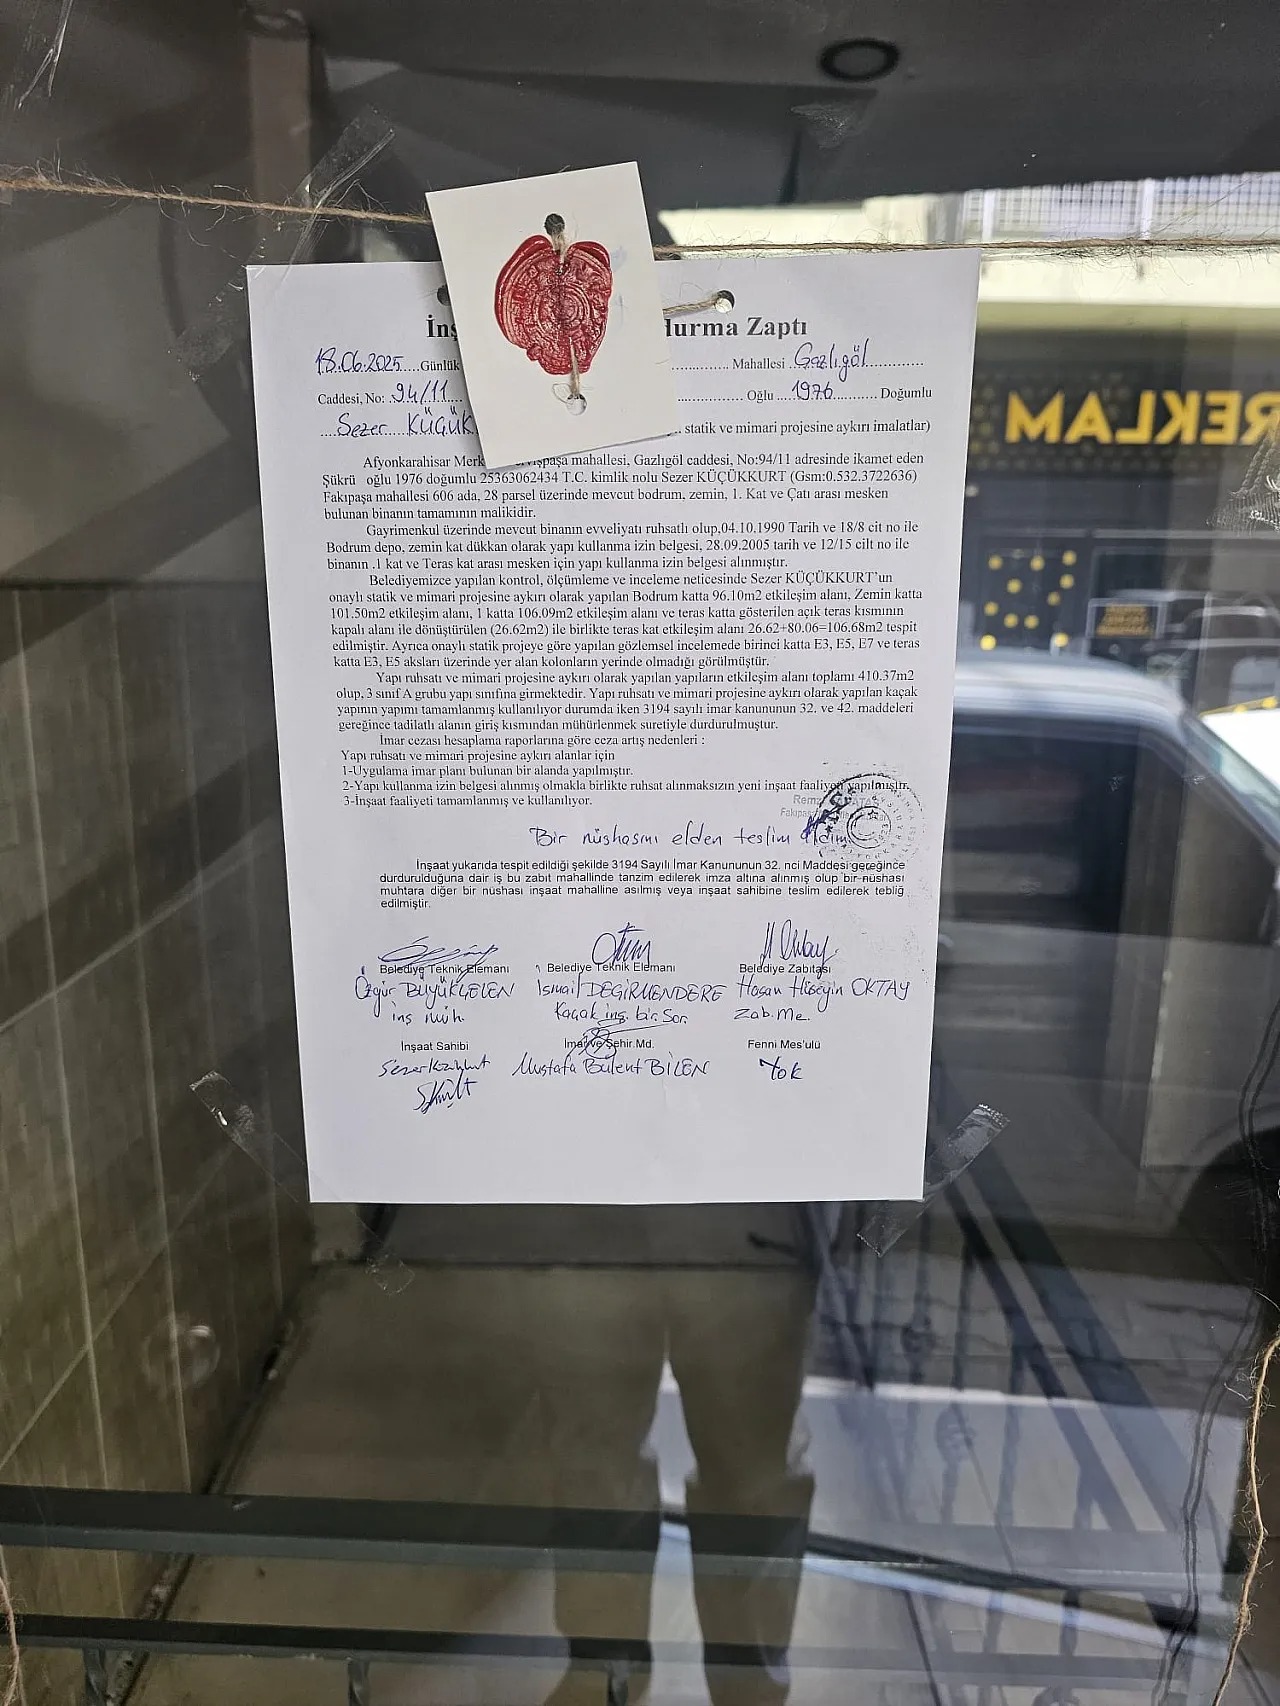 İnş durma Zaptı
18.06.2025.....Günlük ............ Mahallesi ..Gazlıgöl...............
Caddesi, No: .94/11.... ................. Oğlu ....1976........... Doğumlu
....Sezer....KÜÇÜK .. statik ve mimari projesine aykırı imalatlar)
Afyonkarahisar Merk işpaşa mahallesi, Gazlıgöl caddesi, No:94/11 adresinde ikamet eden
Şükrü oğlu 1976 doğumlu 25363062434 T.C. kimlik nolu Sezer KÜÇÜKKURT (Gsm:0.532.3722636)
Fakıpaşa mahallesi 606 ada, 28 parsel üzerinde mevcut bodrum, zemin, 1. Kat ve Çatı arası mesken
bulunan binanın tamamının malikidir.
Gayrimenkul üzerinde mevcut binanın evveliyatı ruhsatlı olup,04.10.1990 Tarih ve 18/8 cit no ile
Bodrum depo, zemin kat dükkan olarak yapı kullanma izin belgesi, 28.09.2005 tarih ve 12/15 cilt no ile
binanın .1 kat ve Teras kat arası mesken için yapı kullanma izin belgesi alınmıştır.
Belediyemizce yapılan kontrol, ölçümleme ve inceleme neticesinde Sezer KÜÇÜKKURT'un
onaylı statik ve mimari projesine aykırı olarak yapılan Bodrum katta 96.10m2 etkileşim alanı, Zemin katta
101.50m2 etkileşim alanı, 1 katta 106.09m2 etkileşim alanı ve teras katta gösterilen açık teras kısmının
kapalı alanı ile dönüştürülen (26.62m2) ile birlikte teras kat etkileşim alanı 26.62+80.06=106.68m2 tespit
edilmiştir. Ayrıca onaylı statik projeye göre yapılan gözlemsel incelemede birinci katta E3, E5, E7 ve teras
katta E3, E5 aksları üzerinde yer alan kolonların yerinde olmadığı görülmüştür.
Yapı ruhsatı ve mimari projesine aykırı olarak yapılan yapıların etkileşim alanı toplamı 410.37m2
olup, 3 sınıf A grubu yapı sınıfına girmektedir. Yapı ruhsatı ve mimari projesine aykırı olarak yapılan kaçak
yapının yapımı tamamlanmış kullanılıyor durumda iken 3194 sayılı imar kanununun 32. ve 42. maddeleri
gereğince tadilatlı alanın giriş kısmından mühürlenmek suretiyle durdurulmuştur.
İmar cezası hesaplama raporlarına göre ceza artış nedenleri :
Yapı ruhsatı ve mimari projesine aykırı alanlar için
1-Uygulama imar planı bulunan bir alanda yapılmıştır.
2-Yapı kullanma izin belgesi alınmış olmakla birlikte ruhsat alınmaksızın yeni inşaat faaliyeti yapılmıştır.
3-İnşaat faaliyeti tamamlanmış ve kullanılıyor.
Bir nüshasını elden teslim aldım
İnşaat yukarıda tespit edildiği şekilde 3194 Sayılı İmar Kanununun 32. nci Maddesi gereğince
durdurulduğuna dair iş bu zabıt mahallinde tanzim edilerek imza altına alınmış olup bir nüshası
muhtara diğer bir nüshası inşaat mahalline asılmış veya inşaat sahibine teslim edilerek tebliğ
edilmiştir.
Belediye Teknik Elemanı Belediye Teknik Elemanı Belediye Zabıtası
Özgür BÜYÜKGELEN İsmail DEĞİRMENDERE Hasan Hüseyin OKTAY
inş müh. Kaçak inş. bir. Sor. Zab. Me.
İnşaat Sahibi İmar ve Şehir Md. Fenni Mes'ulü
Mustafa Bülent BİLEN Yok
REKLAM